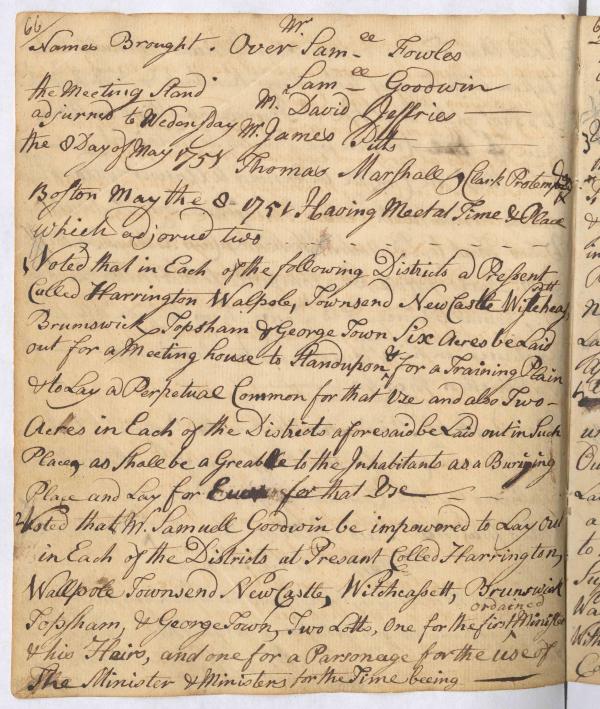 66
Names Brought. Over Mr. Sam-ll Fowles
Sam-ll Goodwin
the Meeting Stand
M. David Jeffries
adjurned to Wedensday Mr. James Pitts
the 8 Day of May 1751
Thomas Marshall, Clark Protemp
Boston May the 8 1751 Having Meetat Time & Place
which adjorud two
1 Voted that in Each of the following Districts a Pressent
Called Harrington Walpole, Townsend NewCastle Witcheasett
Brumswick Topsham & George Town Six Acres be Laid
out for a Meeting house to Standupon & for a Training Plain
& to Lay a Perpetual Common for that Uze and also Two-
Acres in Each of the Districts aforesaid be Laid out in Such
Place, as Shall be a Greable to the Inhabitants as a Burijing
Place and Lay for Ever for that Use
2 Voted that M. Samuell Goodwin be impowered to Lay out
in Each of the Districts at Presant Called Harrington,
Wallpole Townsend NewCastle, Witcheassett, Brunswick
Topsham, & GeorgeTown, Two Lotts, one for the first ordained Minister
& his Heirs, and one for a Parsonage for the use of
The Minister & Ministers for the Time beeing